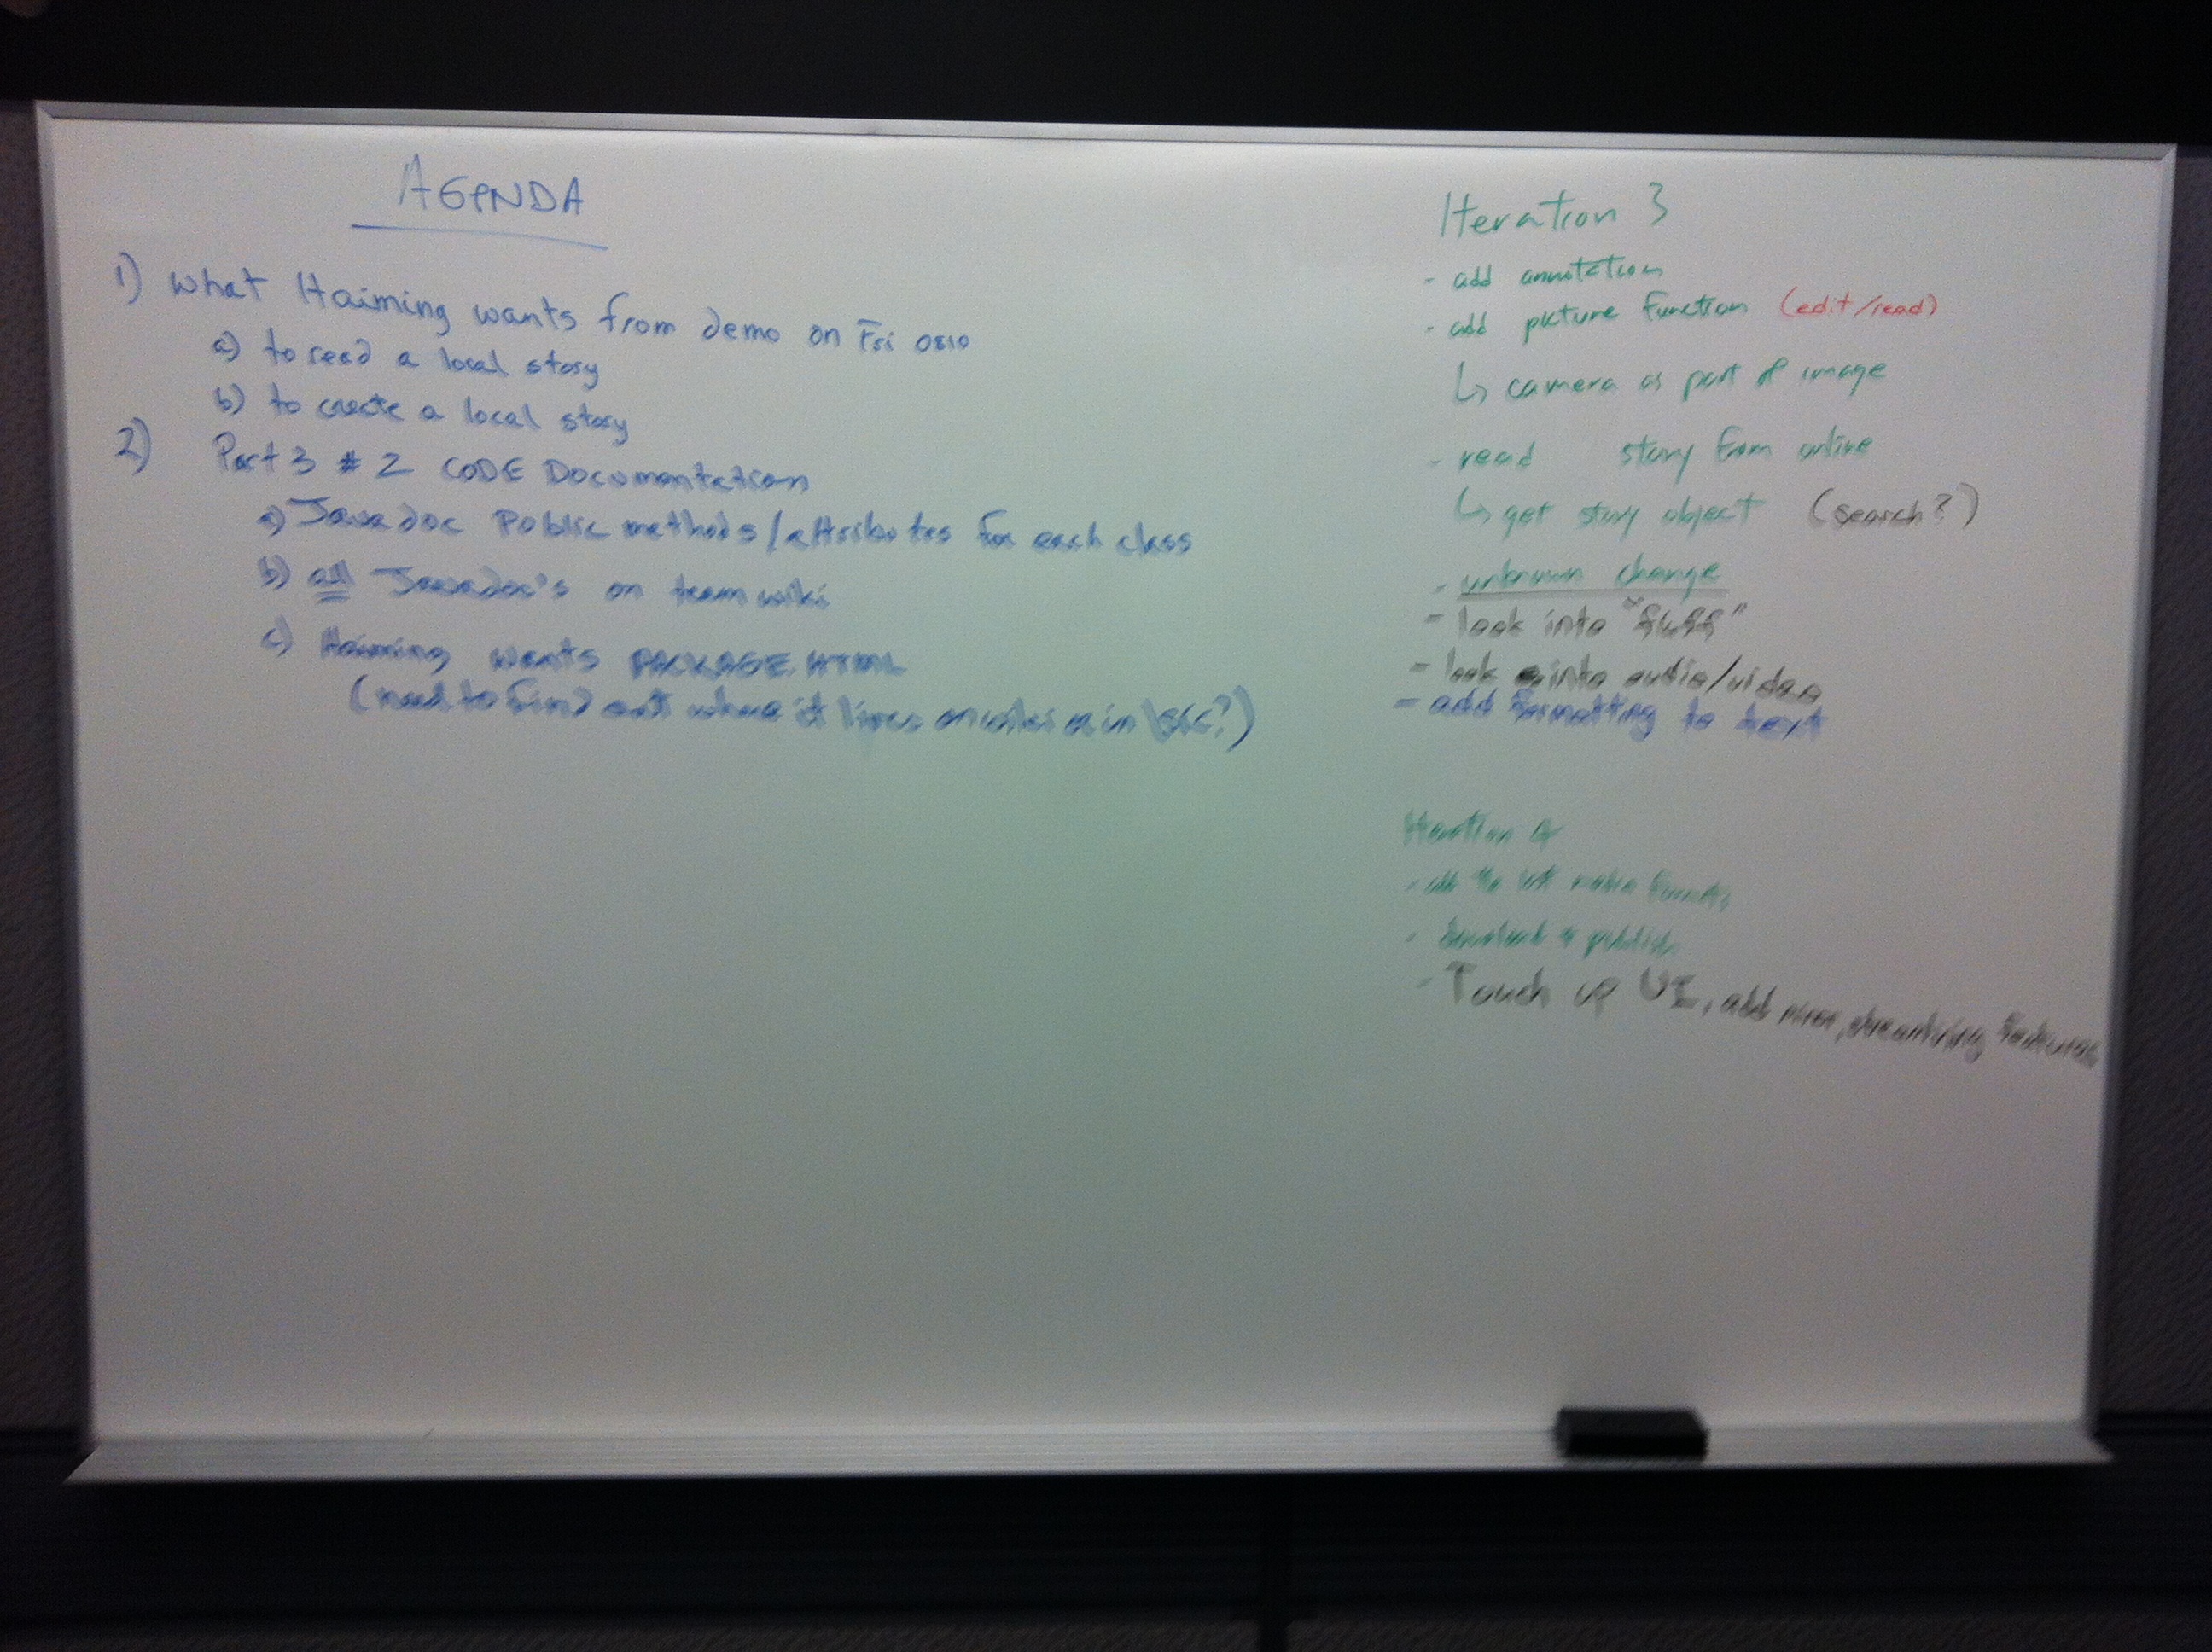 AGENDA
1) What Haiming wants from demo on Fri 0810
a) to read a local story
b) to create a local story
2) Part 3 # 2 CODE Documentation
a) Javadoc Public methods/attributes for each class
b) all Javadoc's on team wiki
c) Haiming wants PACKAGE.HTML
(need to find out where it lives on wiki or in \SRC?)
Iteration 3
- add annotation
- add picture function (edit/read)
↳ camera as part of image
- read story from online
↳ get story object (search?)
- unknown change
- look into "fluff"
- look into audio/video
- add formatting to text
Iteration 4
- add the
- & publish
- Touch up UI, add minor, streamlining features